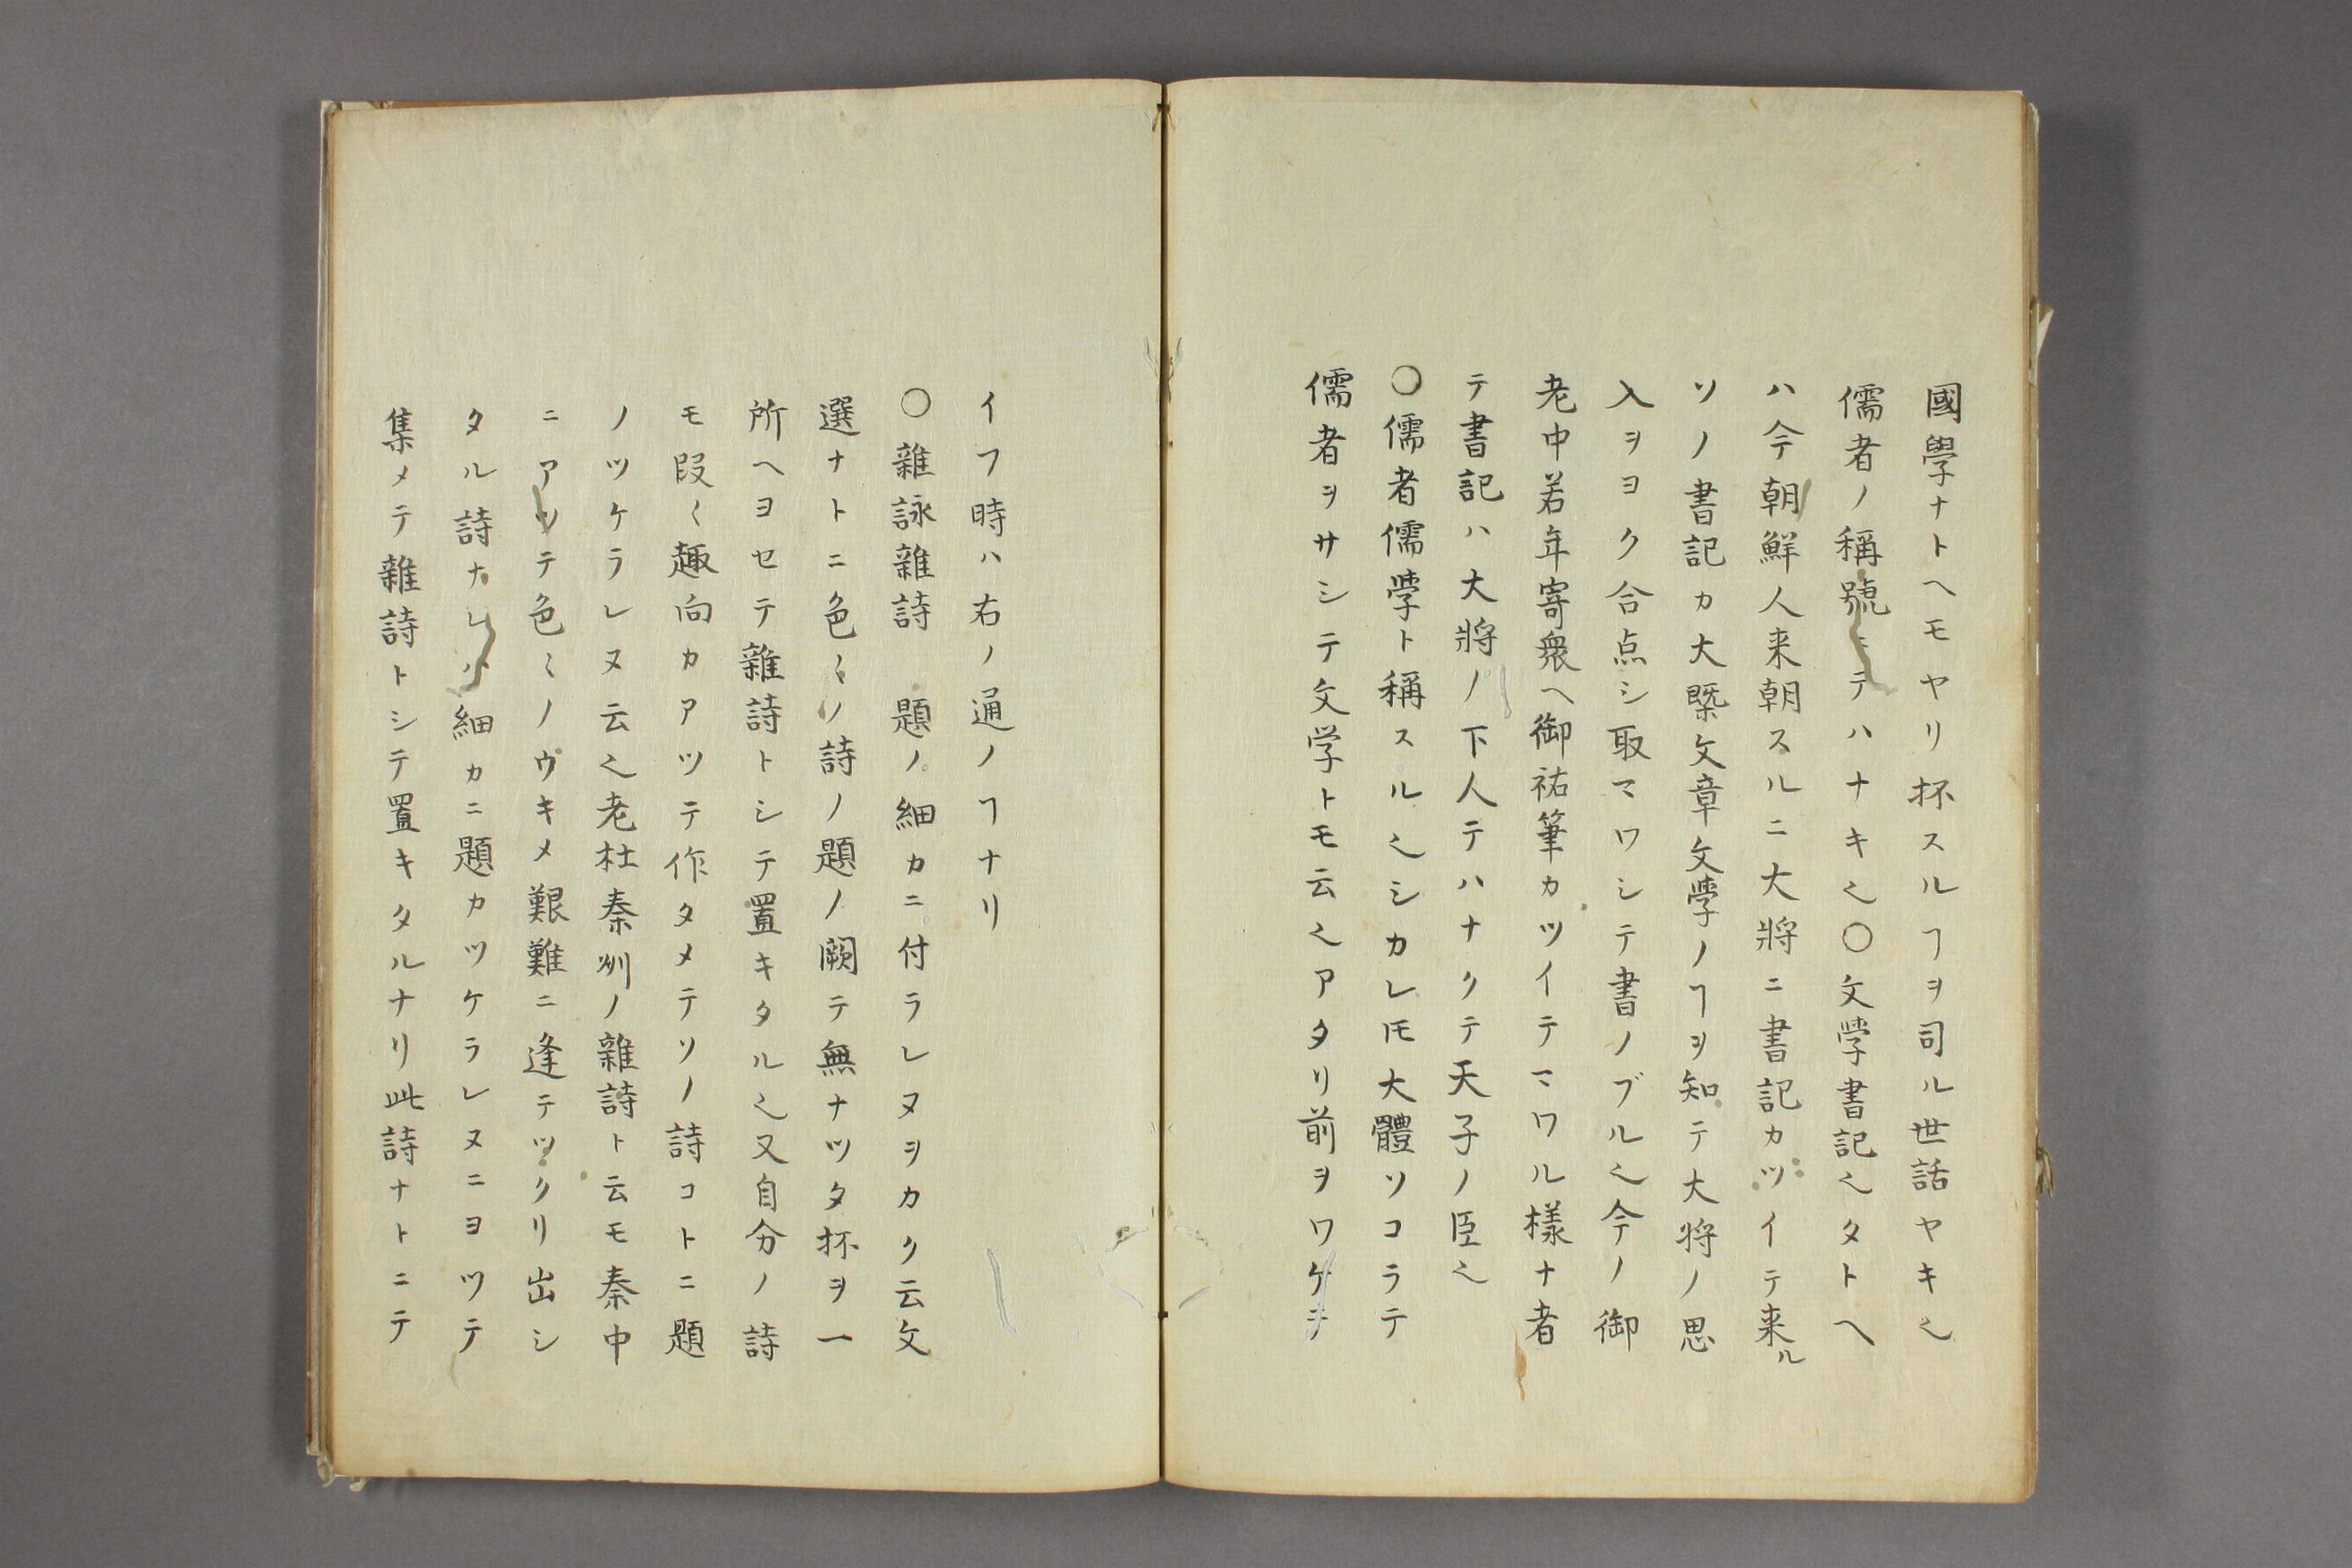 國學ナトヘモヤリ抔スルヿヲ司ル世話ヤキ之
儒者ノ稱號ニテハナキ之〇文学書記之タトヘ
ハ今朝鮮人来朝スルニ大將ニ書記カツイテ来ル
ソノ書記カ大槩文章文学ノヿヲ知テ大将ノ思
入ヲヨク合点シ取マワシテ書ノブル之今ノ御
老中若年寄衆ヘ御祐筆カツイテマワル樣ナ者
テ書記ハ大將ノ下人テハナクテ天子ノ臣之
〇儒者儒学ト稱スル之シカレ𪜈大體ソコラテ
儒者ヲサシテ文学トモ云之アタリ前ヲワケテ
イフ時ハ右ノ通ノヿナリ
〇雜詠雜詩 題ノ細カニ付ラレヌヲカク云文
選ナトニ色〻ノ詩ノ題ノ闕テ無ナツタ抔ヲ一
所ヘヨセテ雜詩トシテ置キタル之又自分ノ詩
モ段〻趣向カアツテ作タメテソノ詩コトニ題
ノツケラレヌ云之老杜秦州ノ雜詩ト云モ秦中
ニアツテ色〻ノウキメ艱難ニ逢テツクリ出シ
タル詩ナレハ細カニ題カツケラレヌニヨツテ
集メテ雜詩トシテ置キタルナリ此詩ナトニテ